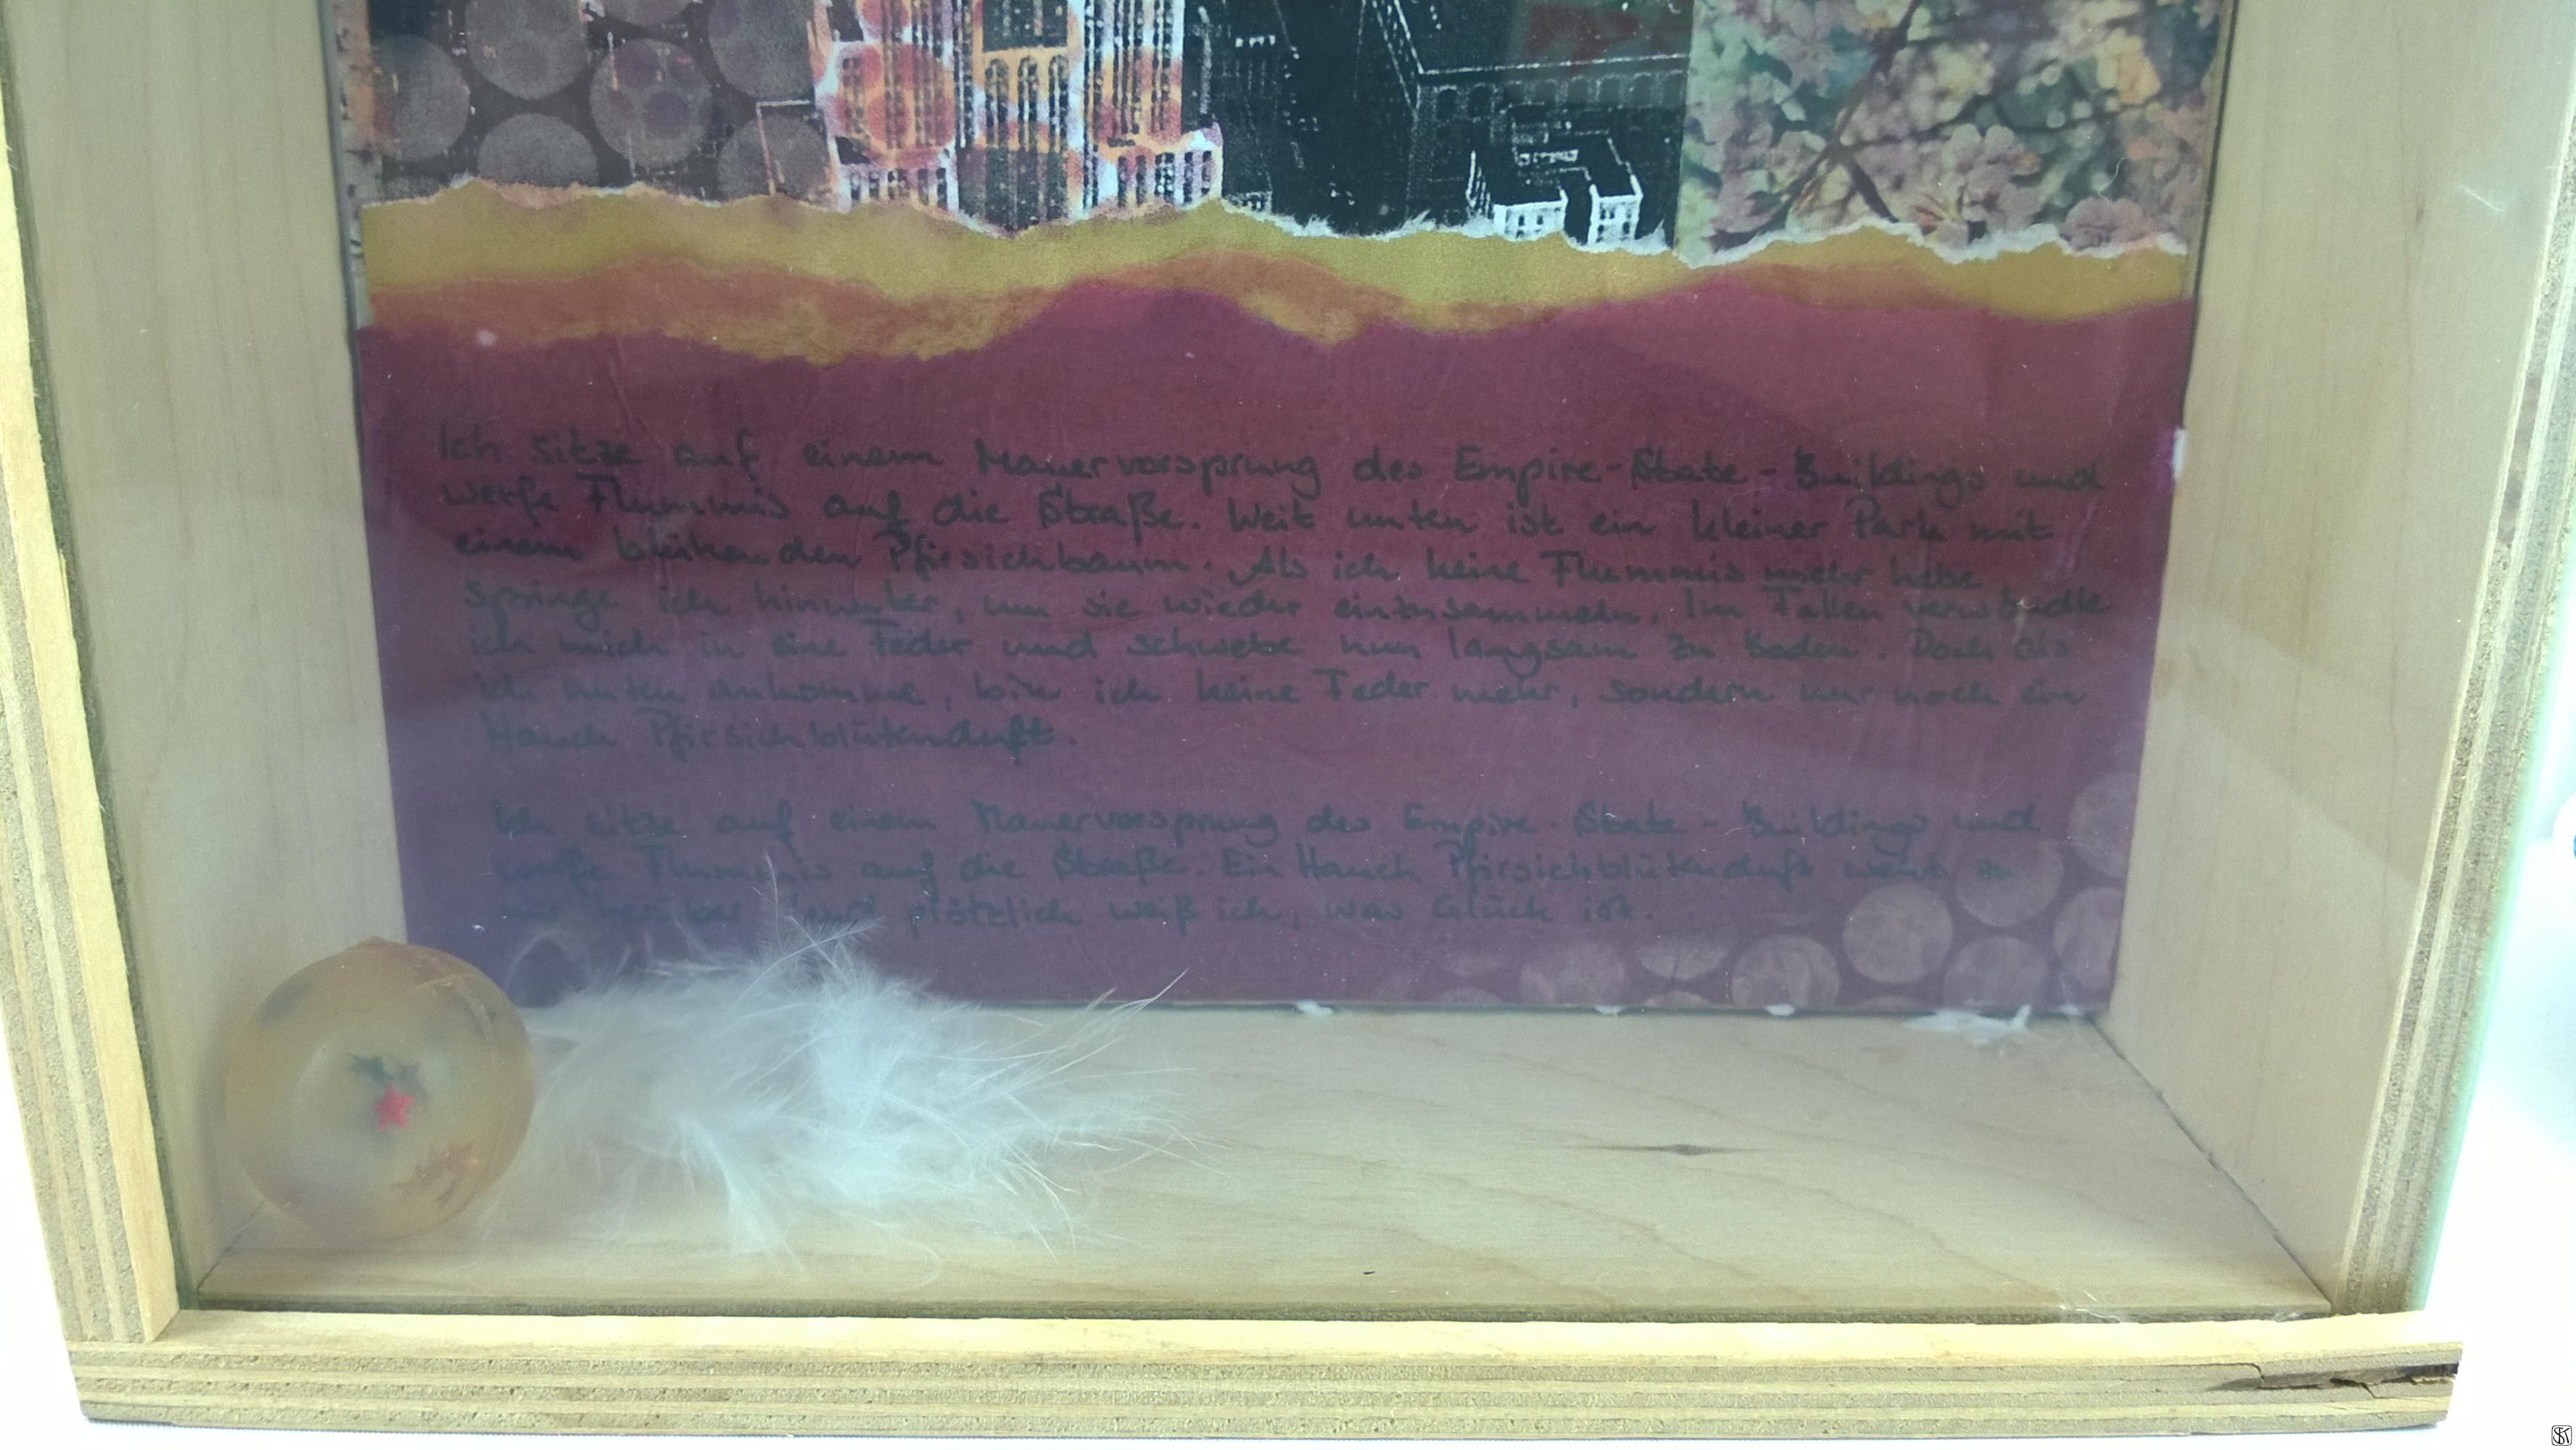 Ich sitze auf einem Mauervorsprung des Empire-State-Buildings und
werfe Flummis auf die Straße. Weit unten ist ein kleiner Park mit
einem blühenden Pfirsichbaum. Als ich keine Flummis mehr habe
springe ich hinunter, um sie wieder einzusammeln. Im Fallen verwandle
ich mich in eine Feder und schwebe nun langsam zu Boden. Doch als
ich unten ankomme, bin ich keine Feder mehr, sondern nur noch ein
Hauch Pfirsichblütenduft.
Ich sitze auf einem Mauervorsprung des Empire-State-Buildings und
werfe Flummis auf die Straße. Ein Hauch Pfirsichblütenduft weht zu
mir herüber und plötzlich weiß ich, was Glück ist.